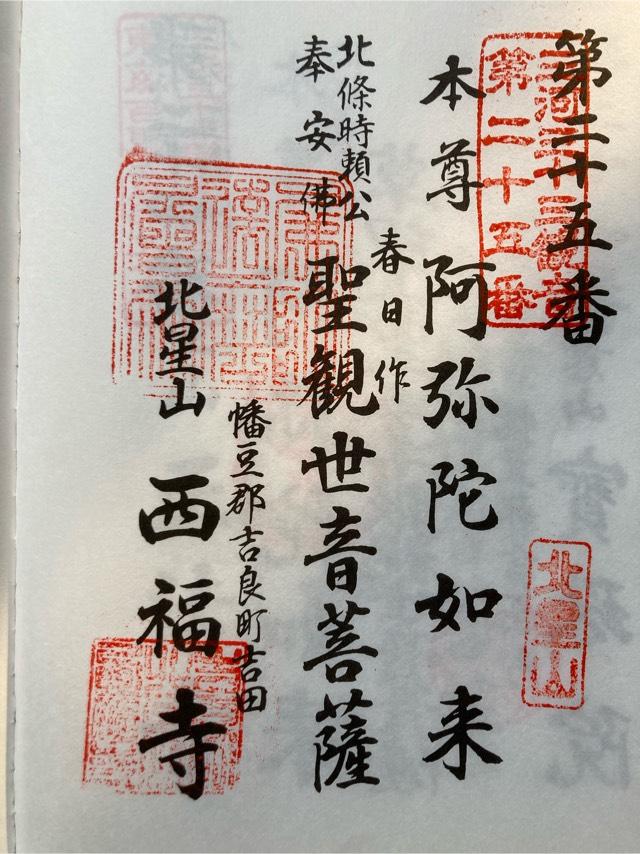 第二十五番
三河三十三観音
第二十五番
北星山
本尊 阿弥陀如来
春日作
北條時頼公
奉安佛 聖観世音菩薩
幡豆郡吉良町吉田
北星山 西福寺